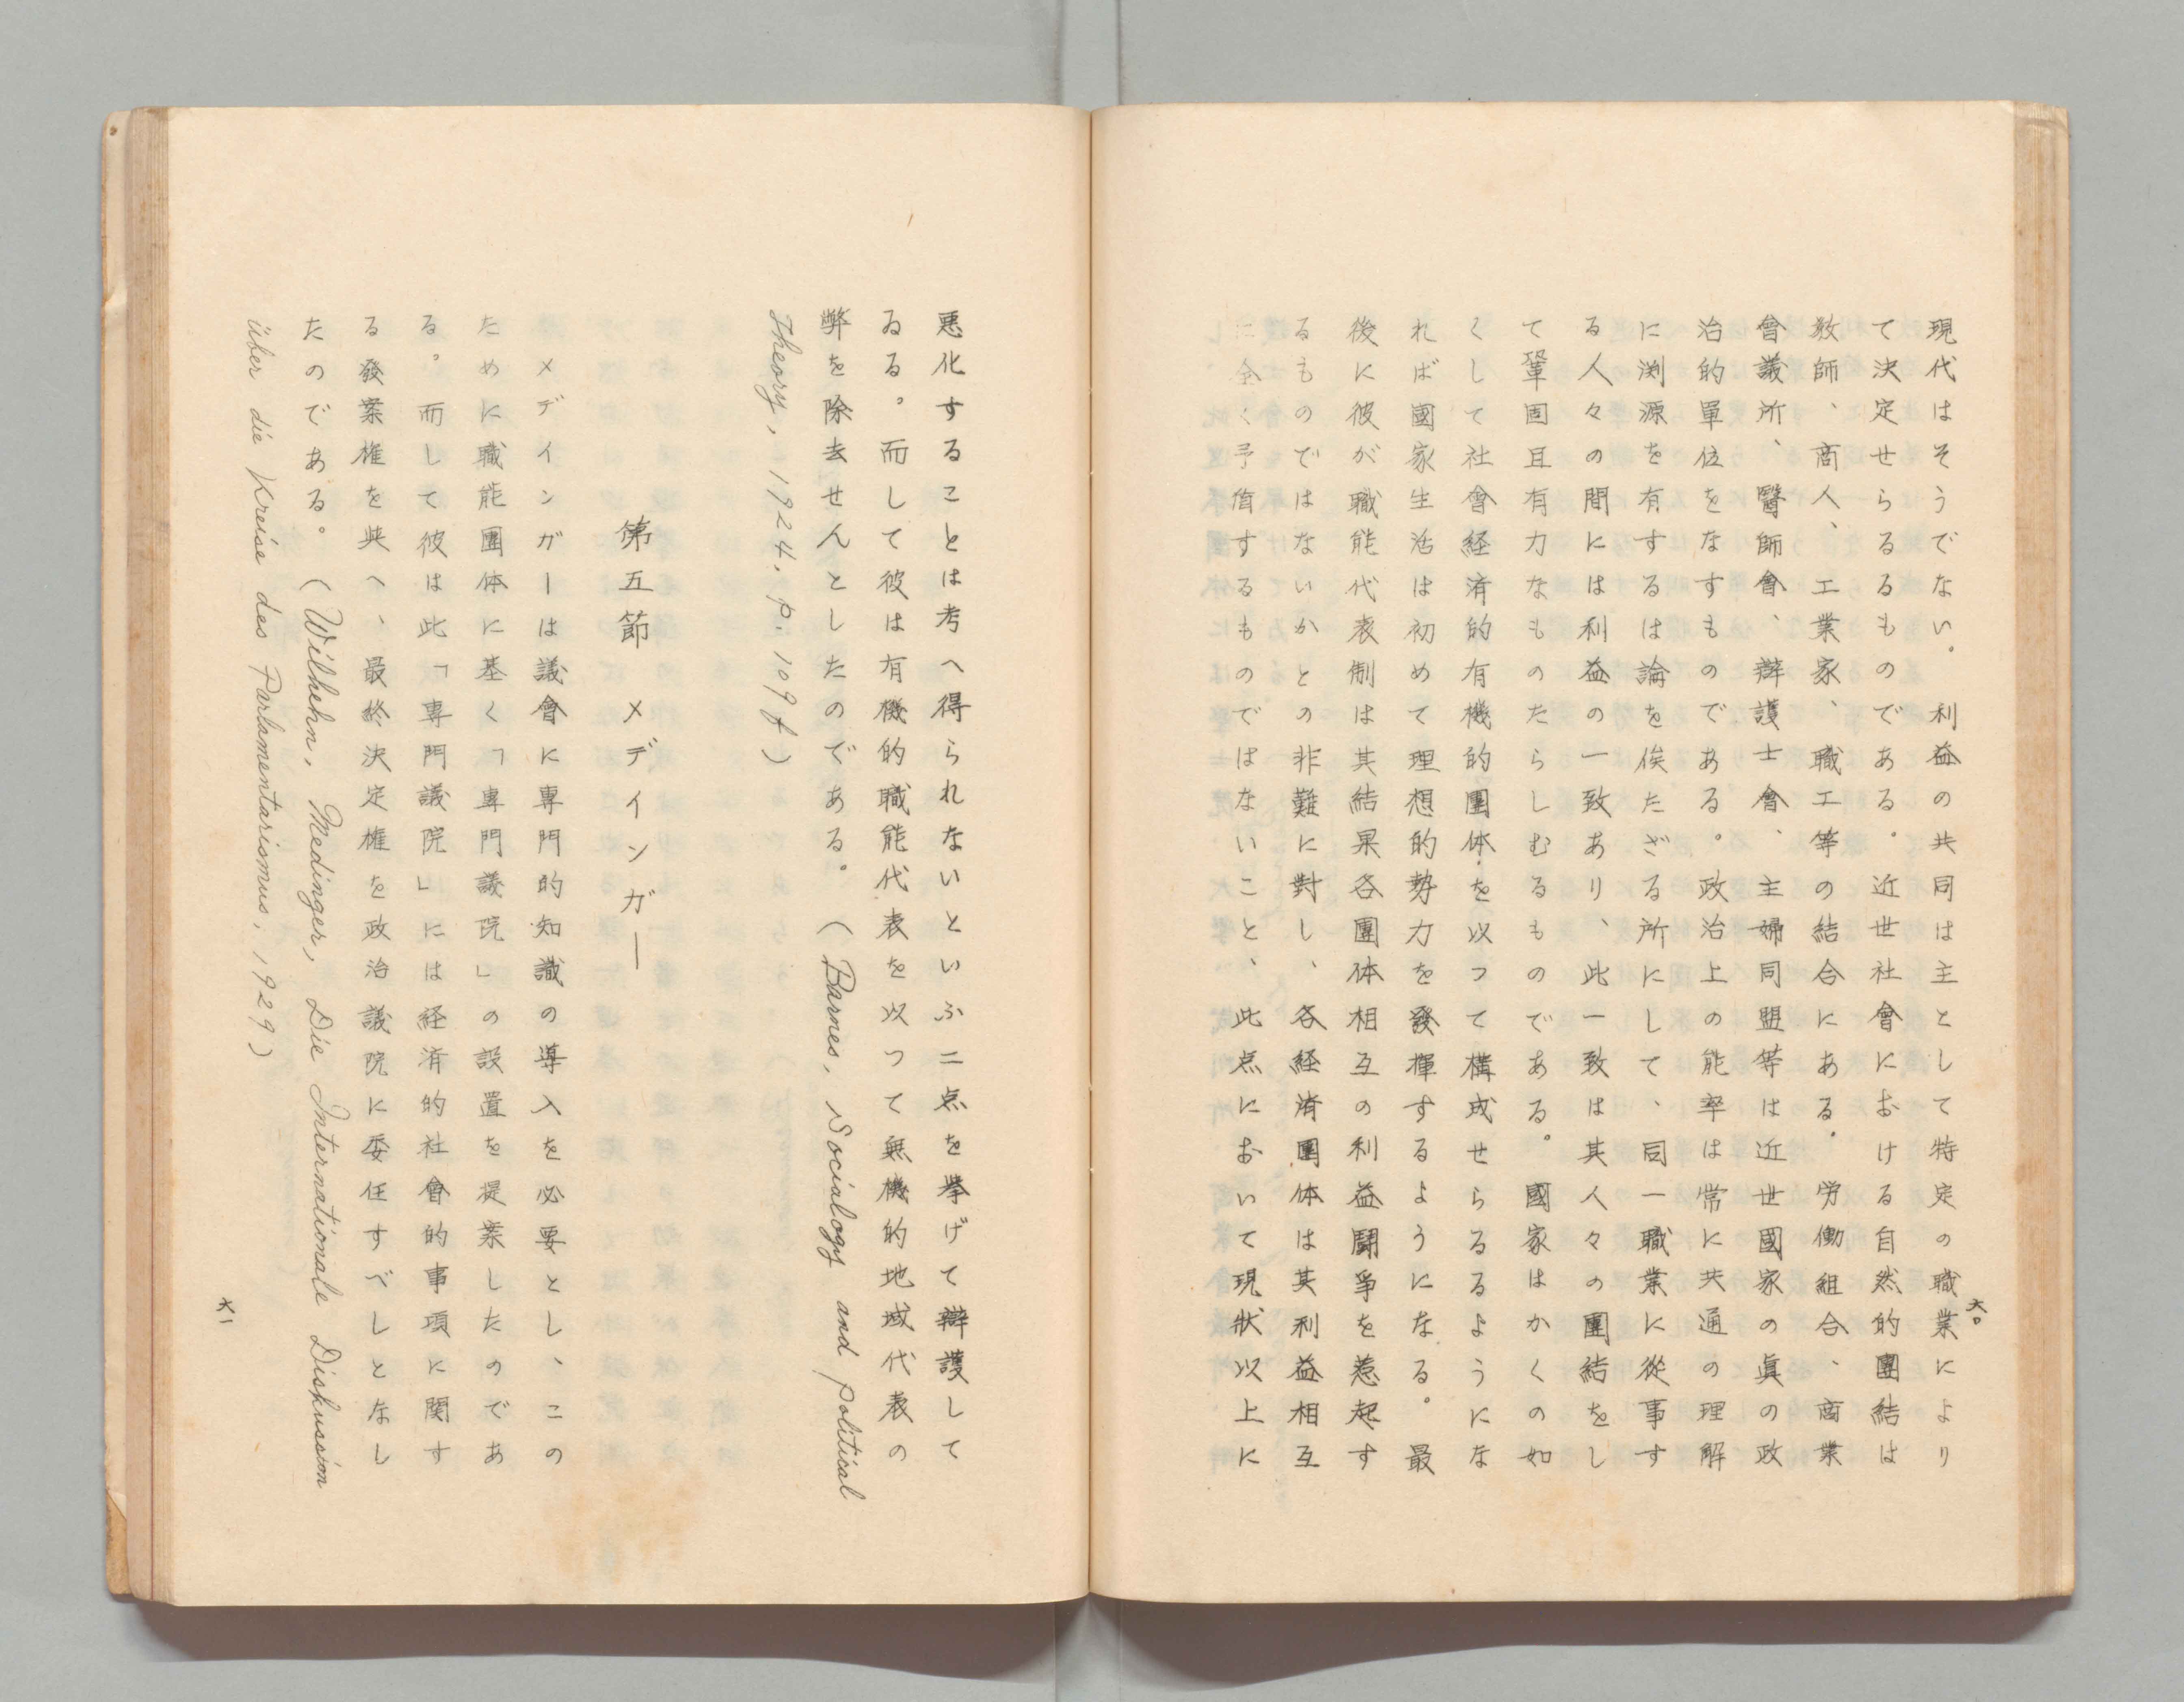 現代はそうでない。利益の共同は主として特定の職業により
て決定せらるるものである。近世社會における自然的團結は
教師、商人、工業家、職工等の結合にある。労働組合、商業
會議所、醫師會、辯護士會、主婦同盟等は近世國家の眞の政
治的單位をなすものである。政治上の能率は常に共通の理解
に渕源を有するは論を俟たざる所にして、同一職業に從事す
る人々の間には利益の一致あり、此一致は其人々の團結をし
て鞏固且有力なものたらしむるものである。國家はかくの如
くして社會経済的有機的團体を以つて構成せらるるようにな
れば國家生活は初めて理想的勢力を發揮するようになる。最
後に彼が職能代表制は其結果各團体相互の利益闘爭を惹起す
るものではないかとの非難に對し、各経済團体は其利益相互
に全く予盾するものではないこと、此点において現狀以上に
六〇
悪化することは考へ得られないといふ二点を挙げて辯護して
ゐる。而して彼は有機的職能代表を以つて無機的地域代表の
弊を除去せんとしたのである。（Barnes, Socialogy and political
Theory, 1924. P. 109 f）
第五節　メデインガー
メデインガーは議會に専門的知識の導入を必要とし、この
ために職能團体に基く「専門議院」の設置を提案したのであ
る。而して彼は此「専門議院」には経済的社會的事項に関す
る發案権を與へ、最終決定権を政治議院に委任すべしとなし
たのである。（Wilhehn, Medinger, Die Internationale Diskussion
über die Kreise des Parlamentarismus, 1929）
六一